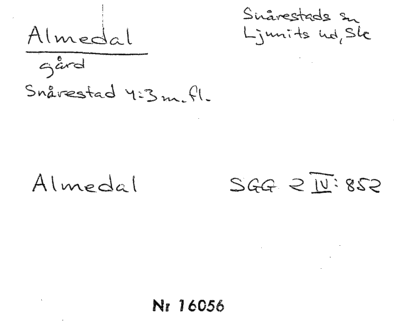 Almedal
gård
Snårestad 4:3 m. fl.
Snårestads sn
Ljunits hd, Sk
Almedal
SGG 2 IV: 852
Nr 16056